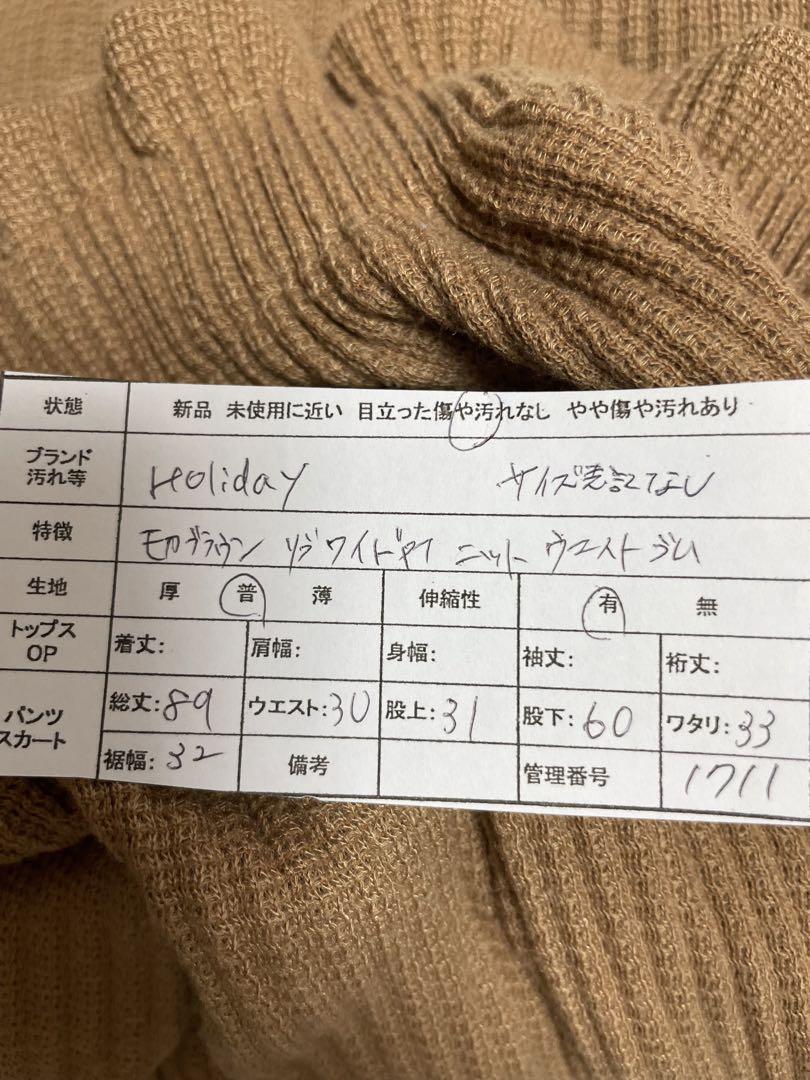 状態 新品 未使用に近い 目立った傷や汚れなし やや傷や汚れあり
ブランド
汚れ等 Holiday サイズ表記なし
特徴 モカブラウン リブワイド ニット ウエストゴム
生地 厚 普 薄 伸縮性 有 無
トップス
OP 着丈: 肩幅: 身幅: 袖丈: 裄丈:
パンツ
スカート 総丈:89 ウエスト:30 股上:31 股下:60 ワタリ:33
裾幅:32 備考 管理番号 1711